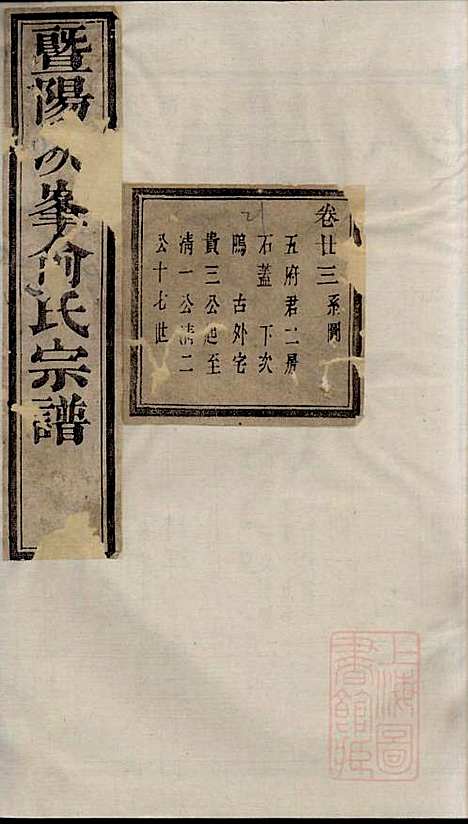 暨陽峯何氏宗譜
卷廿三系圖
五府君二房
石蓋 下次
鴫 古外宅
貴三公起至
清一公清二
公十七世
上海圖
書館